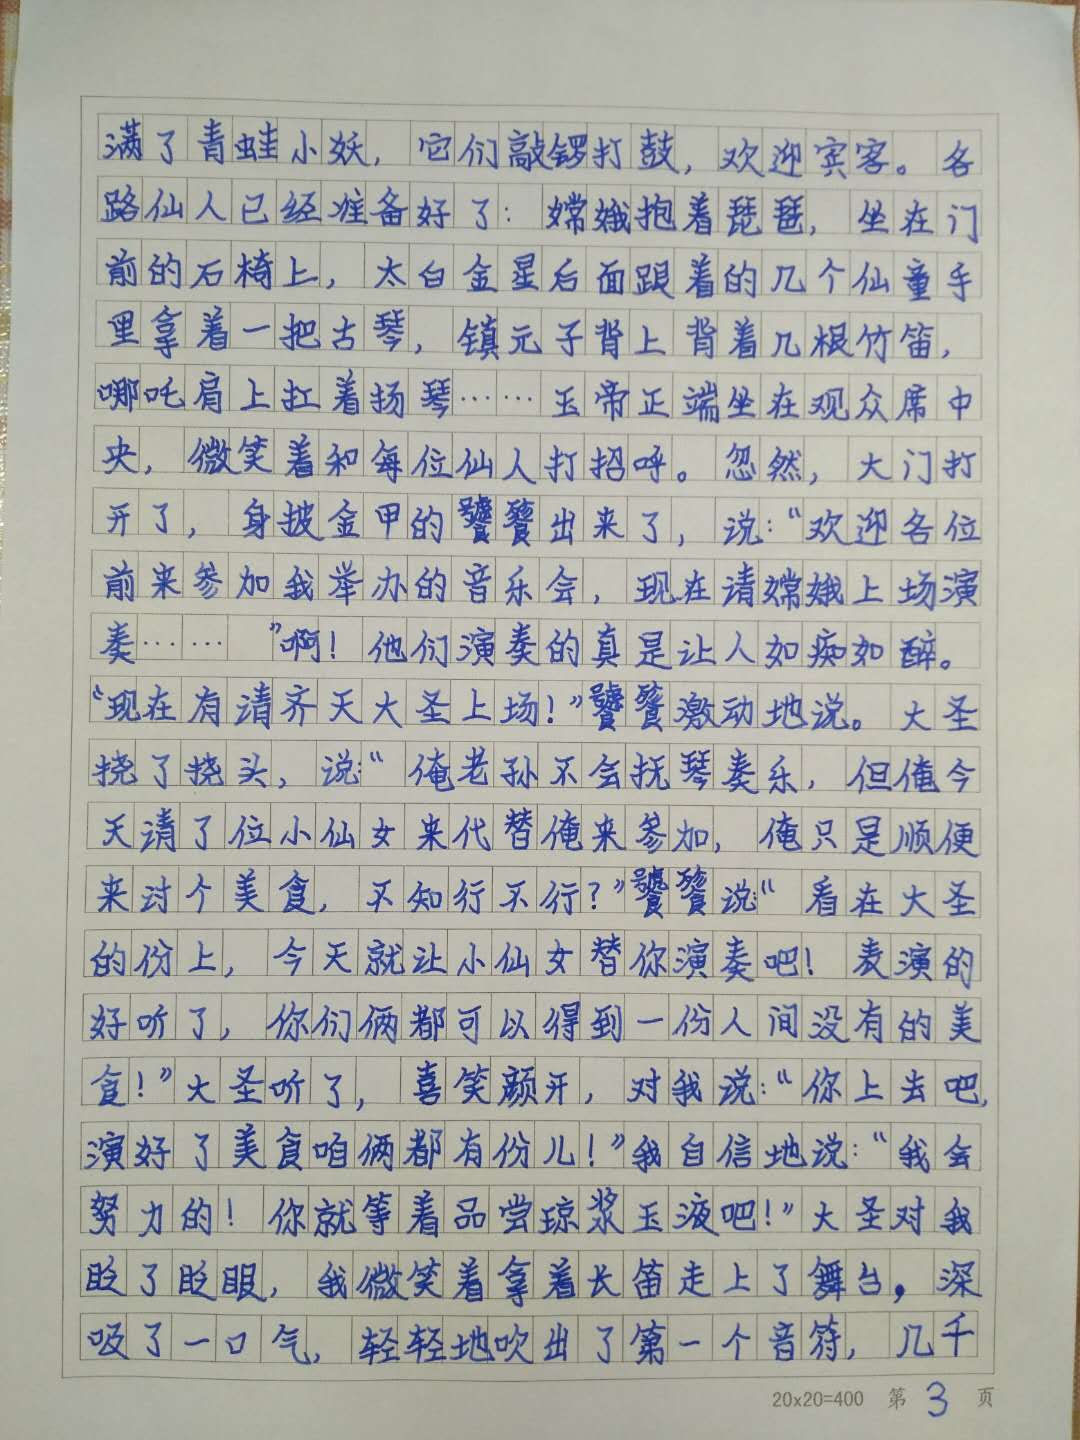 满了青蛙小妖，它们敲锣打鼓，欢迎宾客。各
路仙人已经准备好了：嫦娥抱着琵琶，坐在门
前的石椅上，太白金星后面跟着的几个仙童手
里拿着一把古琴，镇元子背上背着几根竹笛，
哪吒肩上扛着扬琴……玉帝正端坐在观众席中
央，微笑着和每位仙人打招呼。忽然，大门打
开了，身披金甲的饕餮出来了，说：“欢迎各位
前来参加我举办的音乐会，现在请嫦娥上场演
奏…… ”啊！他们演奏的真是让人如痴如醉。
“现在有请齐天大圣上场！”饕餮激动地说。大圣
挠了挠头，说：“俺老孙不会抚琴奏乐，但俺今
天请了位小仙女来代替俺来参加，俺只是顺便
来讨个美食，不知行不行？”饕餮说“看在大圣
的份上，今天就让小仙女替你演奏吧！表演的
好听了，你们俩都可以得到一份人间没有的美
食！”大圣听了，喜笑颜开，对我说：“你上去吧，
演好了美食咱俩都有份儿！”我自信地说：“我会
努力的！你就等着品尝琼浆玉液吧！”大圣对我
眨了眨眼，我微笑着拿着长笛走上了舞台，深
吸了一口气，轻轻地吹出了第一个音符，几千
20x20=400 第 3 页